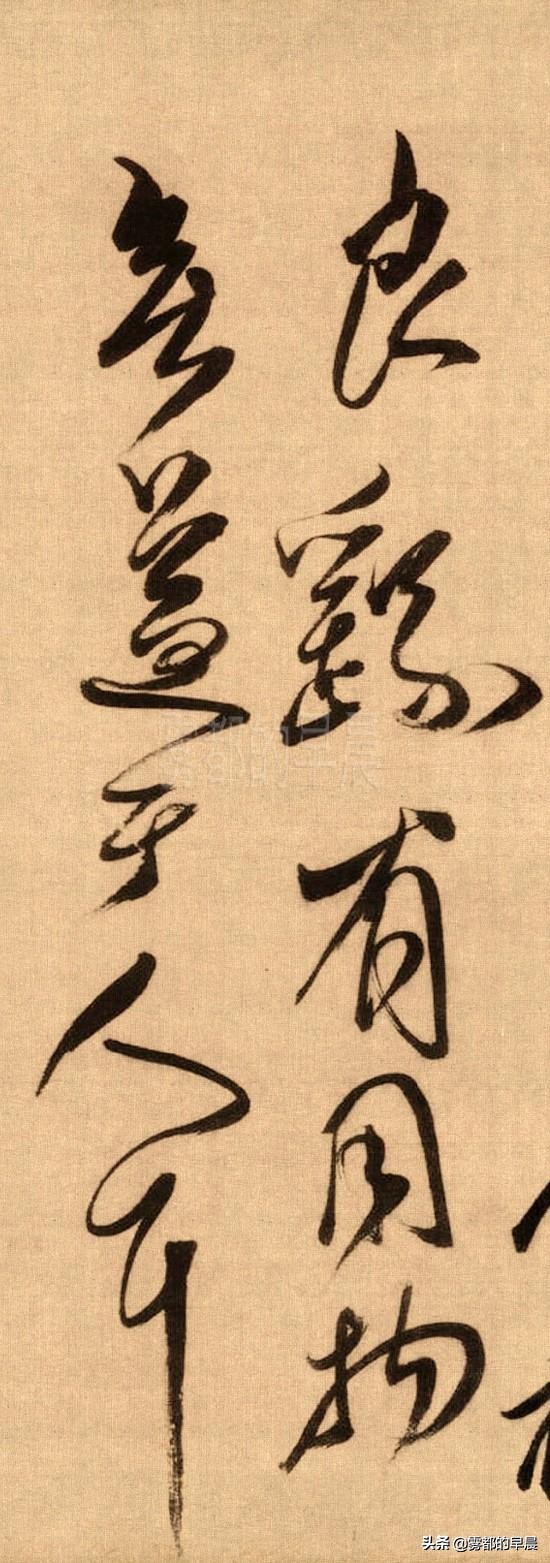 良繇有用物
無益于人耳
雾都的早晨
头条 @雾都的早晨